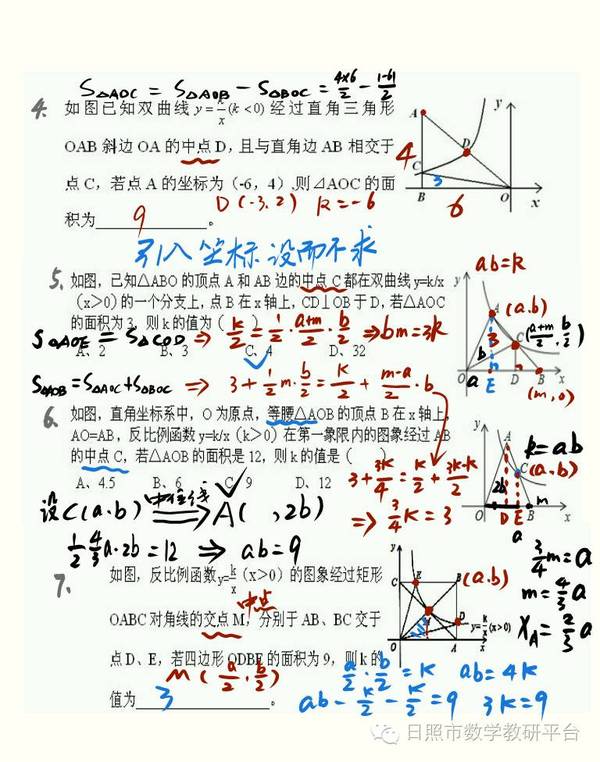 S△AOC = S△AOB - S△BOC = 4×6/2 - |-6|/2
4. 如图已知双曲线 y=k/x(k<0) 经过直角三角形
OAB 斜边 OA 的中点 D，且与直角边 AB 相交于
点 C，若点 A 的坐标为（-6，4）,则⊿AOC 的面
积为 9 。
D(-3,2) k=-6
A
y
D
4
C
3
B
6
O
x
引入坐标 设而不求
5. 如图，已知△ABO 的顶点 A 和 AB 边的中点 C 都在双曲线 y=k/x
（x＞0）的一个分支上，点 B 在 x 轴上，CD⊥OB 于 D，若△AOC
的面积为 3，则 k 的值为（ ）
A、2 B、3 C、4 D、32
S△AOE = S△COD ⇒ k/2 = 1/2·(a+m)/2·b/2 ⇒ bm=3k
S△AOB = S△AOC + S△BOC ⇒ 3+1/2m·b/2 = k/2 + (m-a)/2·b
3+3k/4 = k/2 + (3k-k)/2
⇒ 3/4k = 3
ab=k
y
A
(a.b)
3
C
((a+m)/2, b/2)
b
O
a
E
D
B
x
(m,0)
6. 如图，直角坐标系中，O 为原点，等腰△AOB 的顶点 B 在 x 轴上，
AO=AB，反比例函数 y=k/x（k＞0）在第一象限内的图象经过 AB
的中点 C，若△AOB 的面积是 12，则 k 的值是（ ）
A、4.5 B、6 C、9 D、12
设C(a.b) 中位线 ⇒ A( ,2b)
1/2·4/3a·2b=12 ⇒ ab=9
y
A
k=ab
C
(a.b)
2b
m
O
D
E
B
x
a
3/4m=a
m=4/3a
XA=2/3a
7. 如图，反比例函数 y=k/x（x＞0）的图象经过矩形
OABC 对角线的交点 M，分别于 AB、BC 交于
中点
点 D、E，若四边形 ODBE 的面积为 9，则 k 的
值为 3 。
M(a/2.b/2)
a/2·b/2=k ab=4k
ab-k/2-k/2=9 3k=9
y
C
E
B
(a.b)
M
D
y=k/x(x>0)
O
A
x
日照市数学教研平台